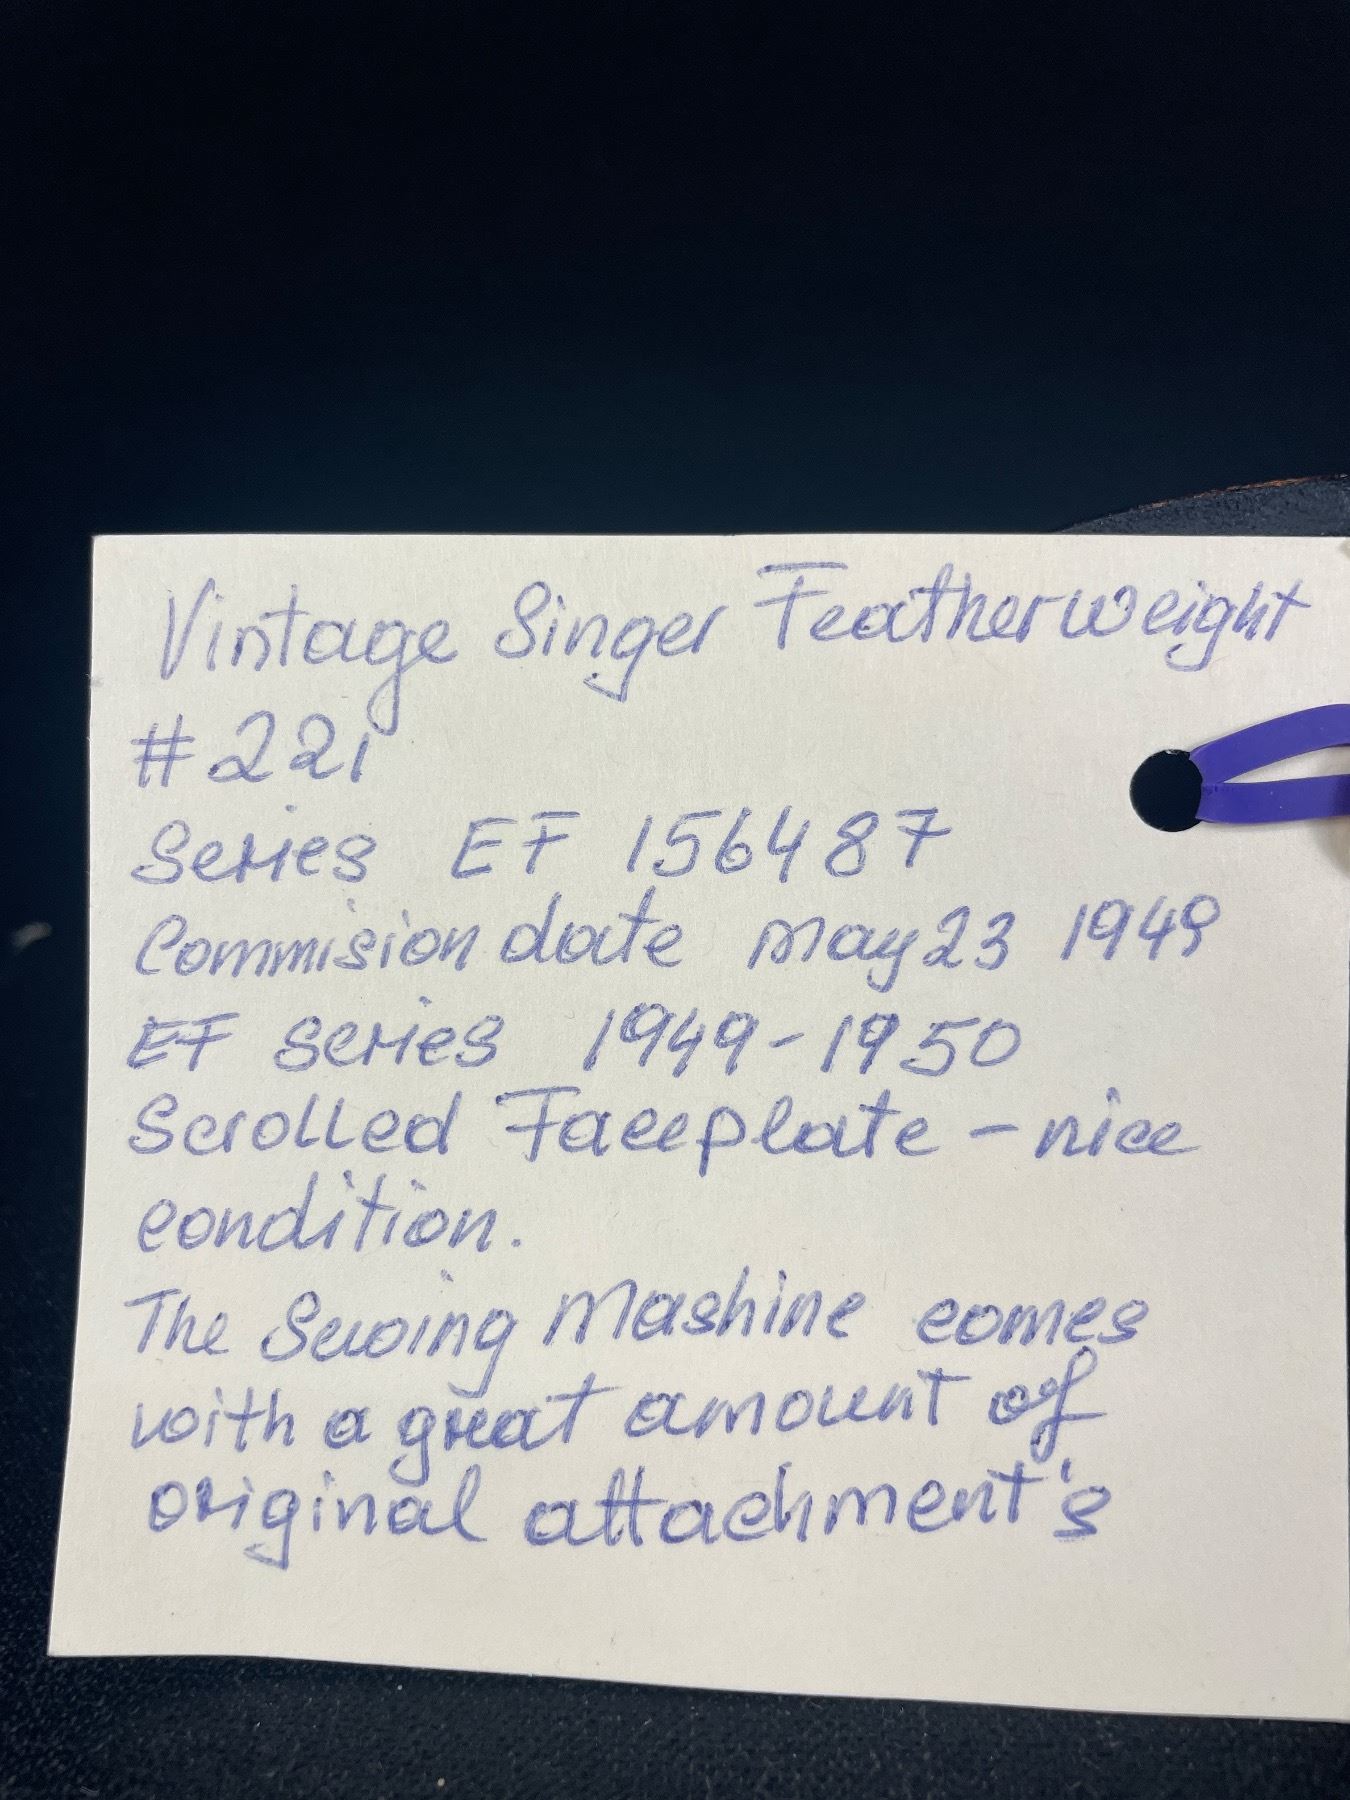 Vintage Singer Featherweight
#221
Series EF 156487
Commision date May 23 1949
EF series 1949-1950
Scrolled Faceplate - nice
condition.
The Sewing Mashine comes
with a great amount of
original attachment's